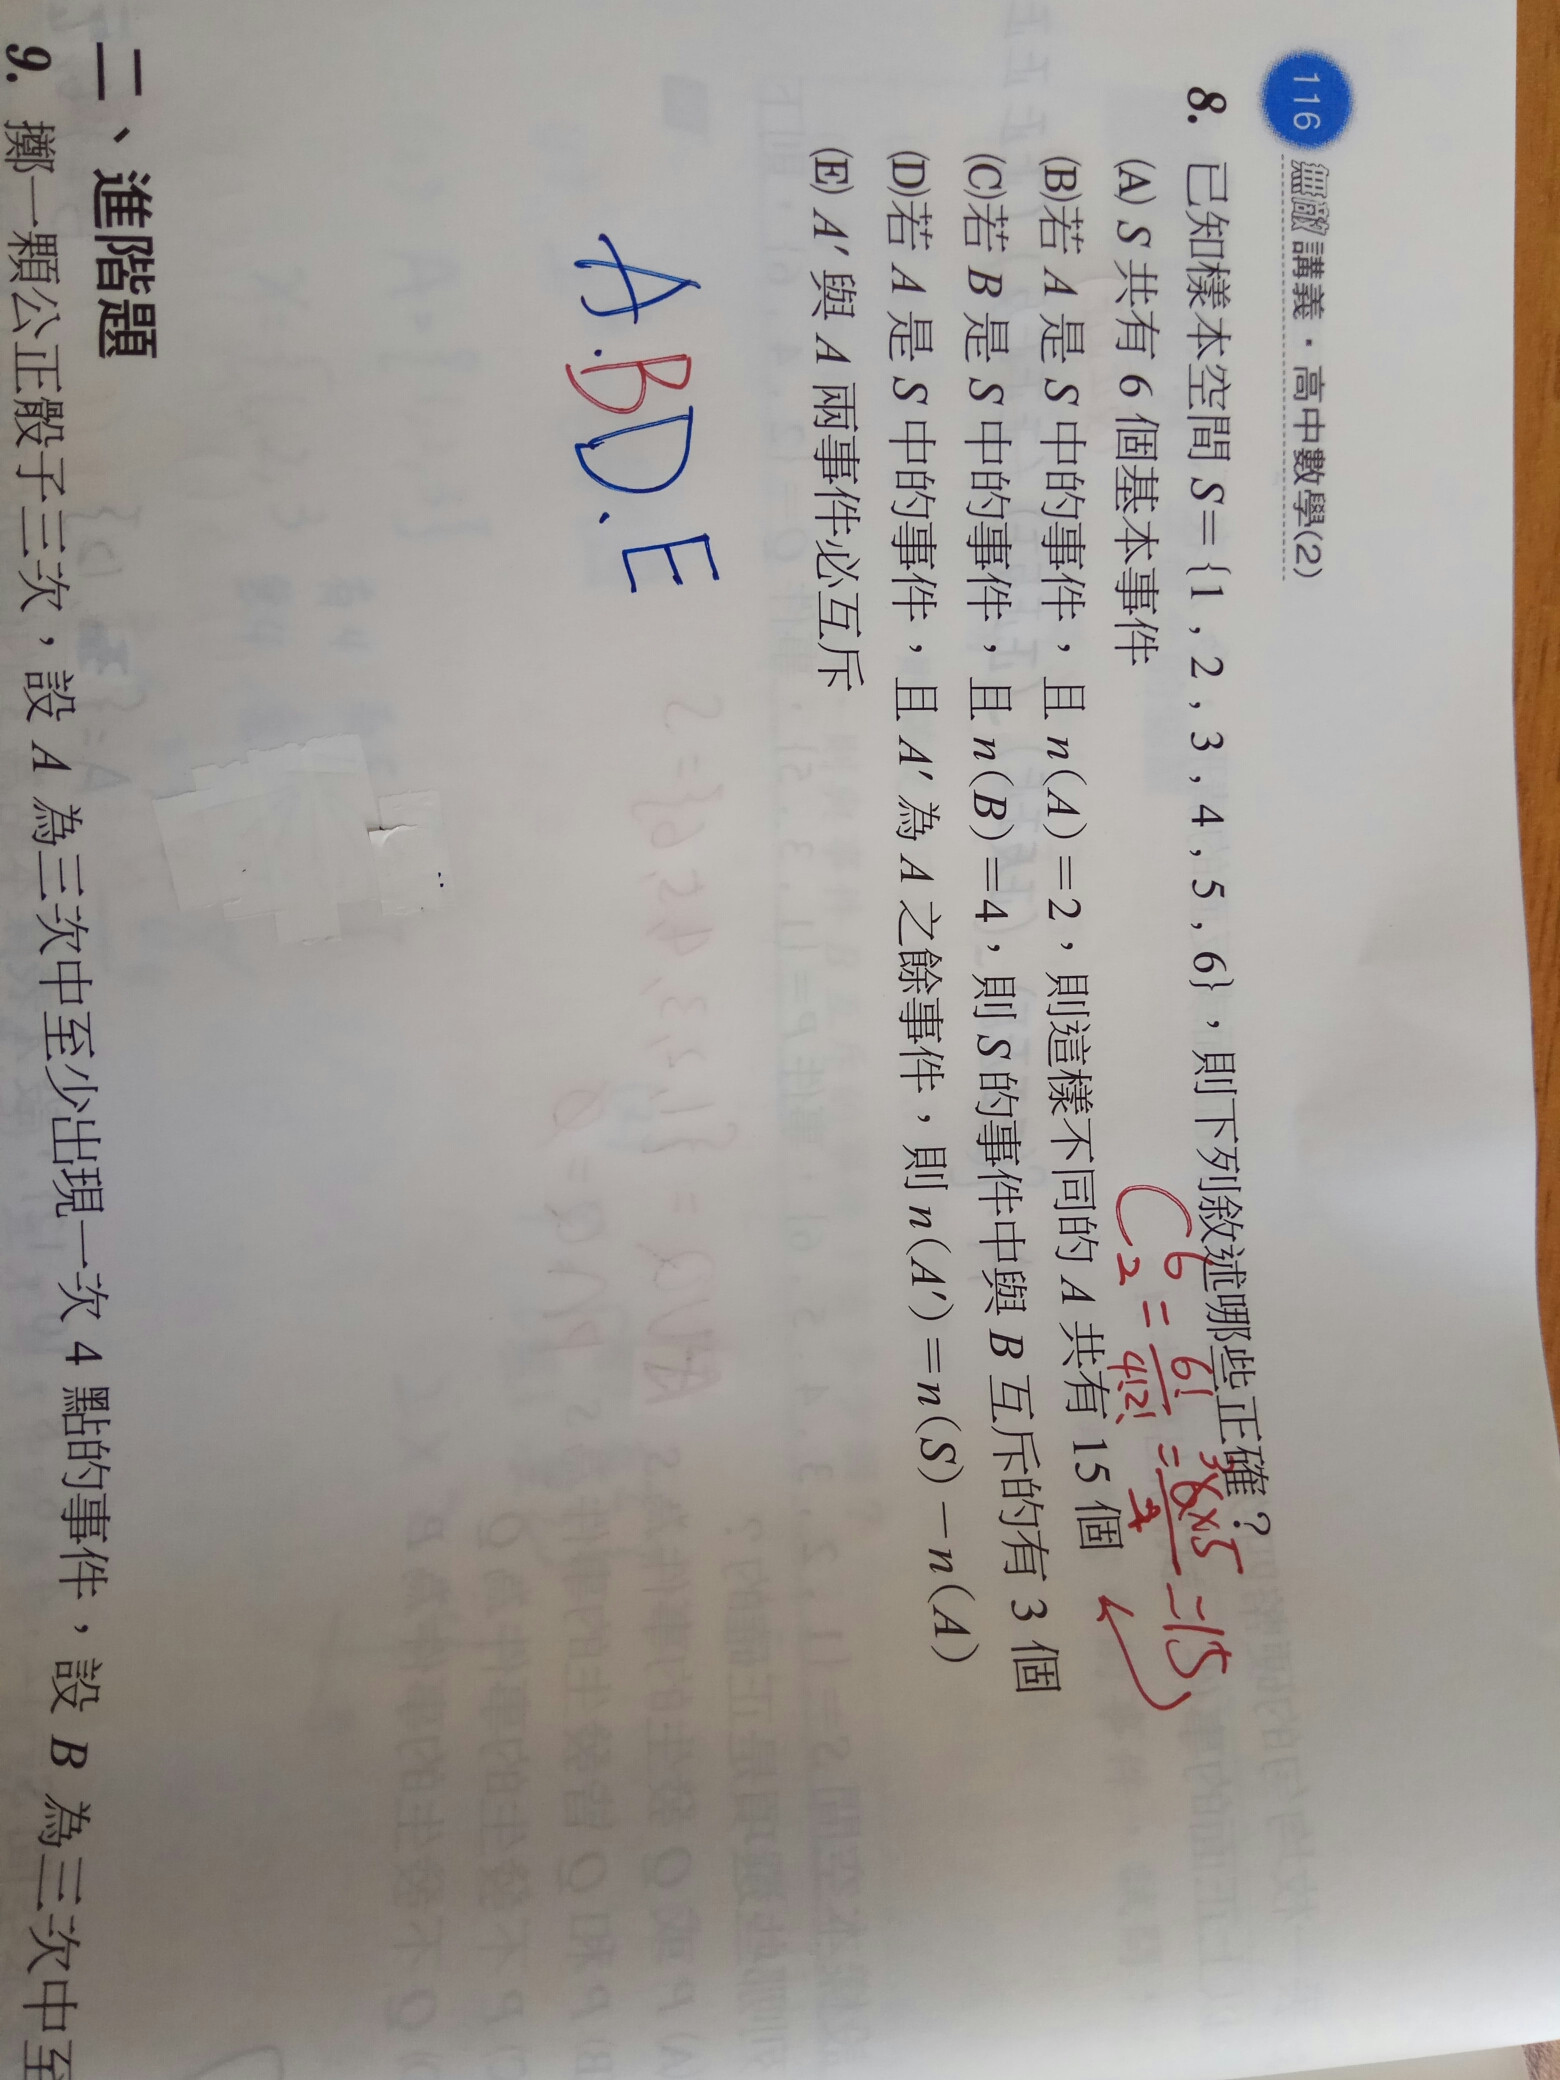 116 無敵 講義・高中數學(2)
8. 已知樣本空間 S={1,2,3,4,5,6},則下列敘述哪些正確?
(A) S 共有 6 個基本事件
C 6 2 = 6! / 4!2! = 6×5 / 2 = 15
(B)若 A 是 S 中的事件,且 n(A)=2,則這樣不同的 A 共有 15 個
(C)若 B 是 S 中的事件,且 n(B)=4,則 S 的事件中與 B 互斥的有 3 個
(D)若 A 是 S 中的事件,且 A′ 為 A 之餘事件,則 n(A′)=n(S)-n(A)
(E) A′ 與 A 兩事件必互斥
A.BD、E
二、進階題
9. 擲一顆公正骰子三次,設 A 為三次中至少出現一次 4 點的事件,設 B 為三次中至